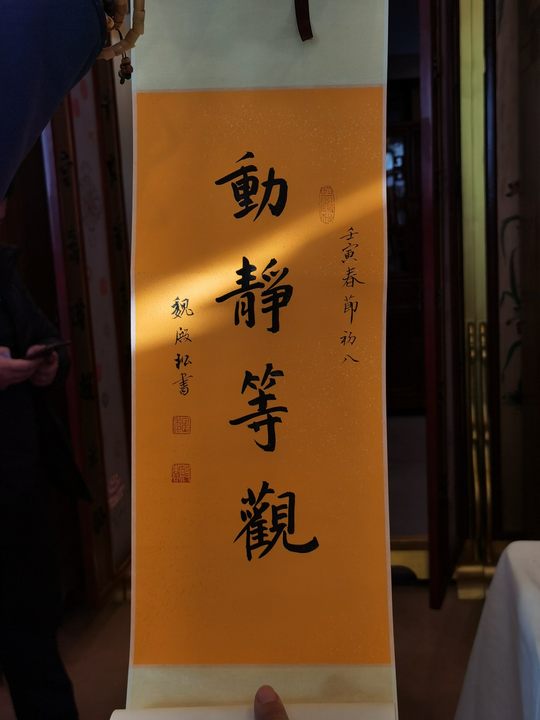 壬寅春節初八
動靜等觀
魏殿松書